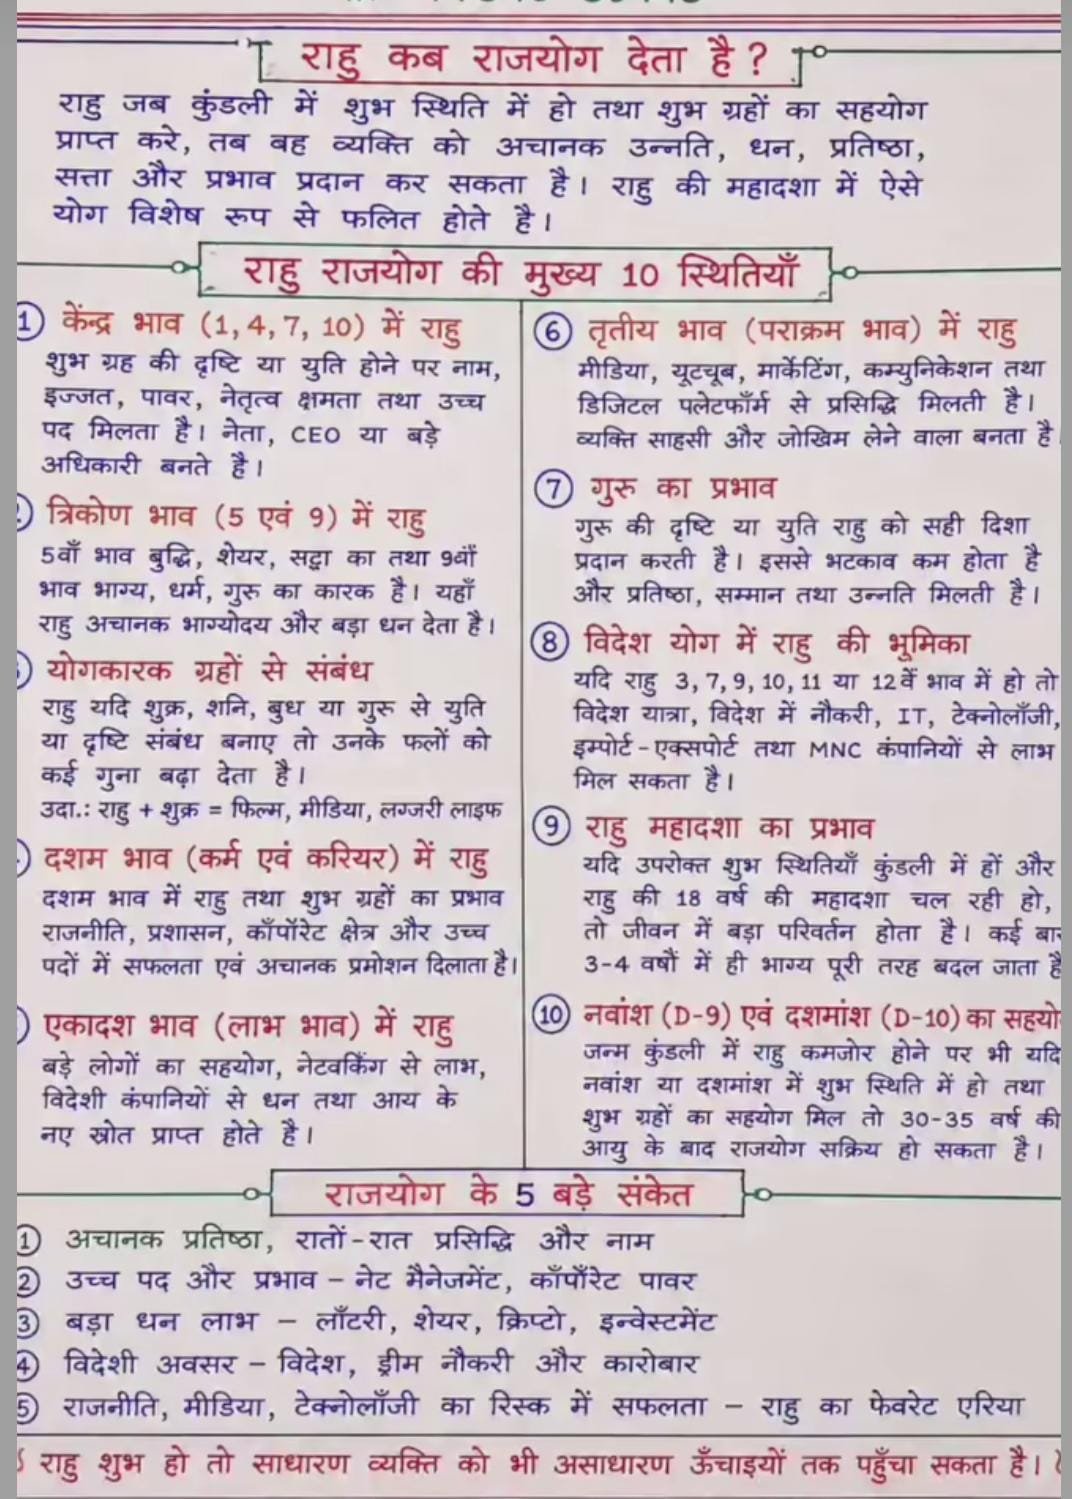 राहु कब राजयोग देता है ?
राहु जब कुंडली में शुभ स्थिति में हो तथा शुभ ग्रहों का सहयोग
प्राप्त करे, तब बह व्यक्ति को अचानक उन्नति, धन, प्रतिष्ठा,
सत्ता और प्रभाव प्रदान कर सकता है। राहु की महादशा में ऐसे
योग विशेष रूप से फलित होते है।
राहु राजयोग की मुख्य 10 स्थितियाँ
1 केंन्द्र भाव (1, 4, 7, 10) में राहु
शुभ ग्रह की दृष्टि या युति होने पर नाम,
इज्जत, पावर, नेतृत्व क्षमता तथा उच्च
पद मिलता है। नेता, CEO या बड़े
अधिकारी बनते है।
त्रिकोण भाव (5 एवं 9) में राहु
5वाँ भाव बुद्धि, शेयर, सट्टा का तथा 9वाँ
भाव भाग्य, धर्म, गुरु का कारक है। यहाँ
राहु अचानक भाग्योदय और बड़ा धन देता है।
योगकारक ग्रहों से संबंध
राहु यदि शुक्र, शनि, बुध या गुरु से युति
या दृष्टि संबंध बनाए तो उनके फलों को
कई गुना बढ़ा देता है।
उदा.: राहु + शुक्र = फिल्म, मीडिया, लग्जरी लाइफ
दशम भाव (कर्म एवं करियर) में राहु
दशम भाव में राहु तथा शुभ ग्रहों का प्रभाव
राजनीति, प्रशासन, कॉर्पोरेट क्षेत्र और उच्च
पदों में सफलता एवं अचानक प्रमोशन दिलाता है।
एकादश भाव (लाभ भाव) में राहु
बड़े लोगों का सहयोग, नेटवर्किंग से लाभ,
विदेशी कंपानियों से धन तथा आय के
नए स्रोत प्राप्त होते है।
6 तृतीय भाव (पराक्रम भाव) में राहु
मीडिया, यूटचूब, मार्केटिंग, कम्युनिकेशन तथा
डिजिटल पलेटफॉर्म से प्रसिद्धि मिलती है।
व्यक्ति साहसी और जोखिम लेने वाला बनता है
7 गुरु का प्रभाव
गुरु की दृष्टि या युति राहु को सही दिशा
प्रदान करती है। इससे भटकाव कम होता है
और प्रतिष्ठा, सम्मान तथा उन्नति मिलती है।
8 विदेश योग में राहु की भुमिका
यदि राहु 3, 7, 9, 10, 11 या 12वें भाव में हो तो
विदेश यात्रा, विदेश में नौकरी, IT, टेक्नोलॉजी,
इम्पोर्ट-एक्सपोर्ट तथा MNC कंपानियों से लाभ
मिल सकता है।
9 राहु महादशा का प्रभाव
यदि उपरोक्त शुभ स्थितियाँ कुंडली में हों और
राहु की 18 वर्ष की महादशा चल रही हो,
तो जीवन में बड़ा परिवर्तन होता है। कई बार
3-4 वर्षों में ही भाग्य पूरी तरह बदल जाता है
10 नवांश (D-9) एवं दशमांश (D-10) का सहयो
जन्म कुंडली में राहु कमजोर होने पर भी यदि
नवांश या दशमांश में शुभ स्थिति में हो तथा
शुभ ग्रहों का सहयोग मिल तो 30-35 वर्ष की
आयु के बाद राजयोग सक्रिय हो सकता है।
राजयोग के 5 बड़े संकेत
1 अचानक प्रतिष्ठा, रातों-रात प्रसिद्धि और नाम
2 उच्च पद और प्रभाव – नेट मैनेजमेंट, कॉर्पोरेट पावर
3 बड़ा धन लाभ – लॉटरी, शेयर, क्रिप्टो, इन्वेस्टमेंट
4 विदेशी अवसर – विदेश, ड्रीम नौकरी और कारोबार
5 राजनीति, मीडिया, टेक्नोलॉजी का रिस्क में सफलता – राहु का फेवरेट एरिया
राहु शुभ हो तो साधारण व्यक्ति को भी असाधारण ऊँचाइयों तक पहुँचा सकता है।